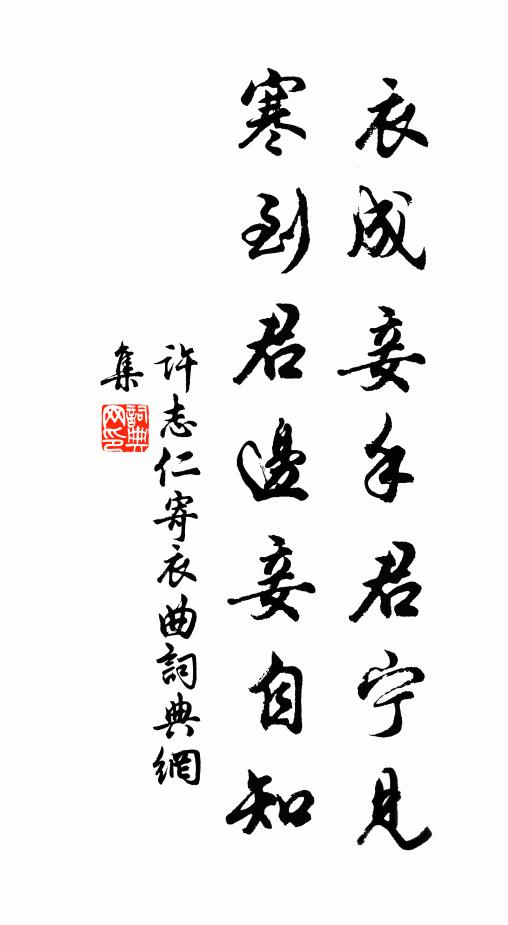 衣成妾手君宁见
寒到君邊妾自知
许志仁寄衣曲詞典網
集
詞典网印